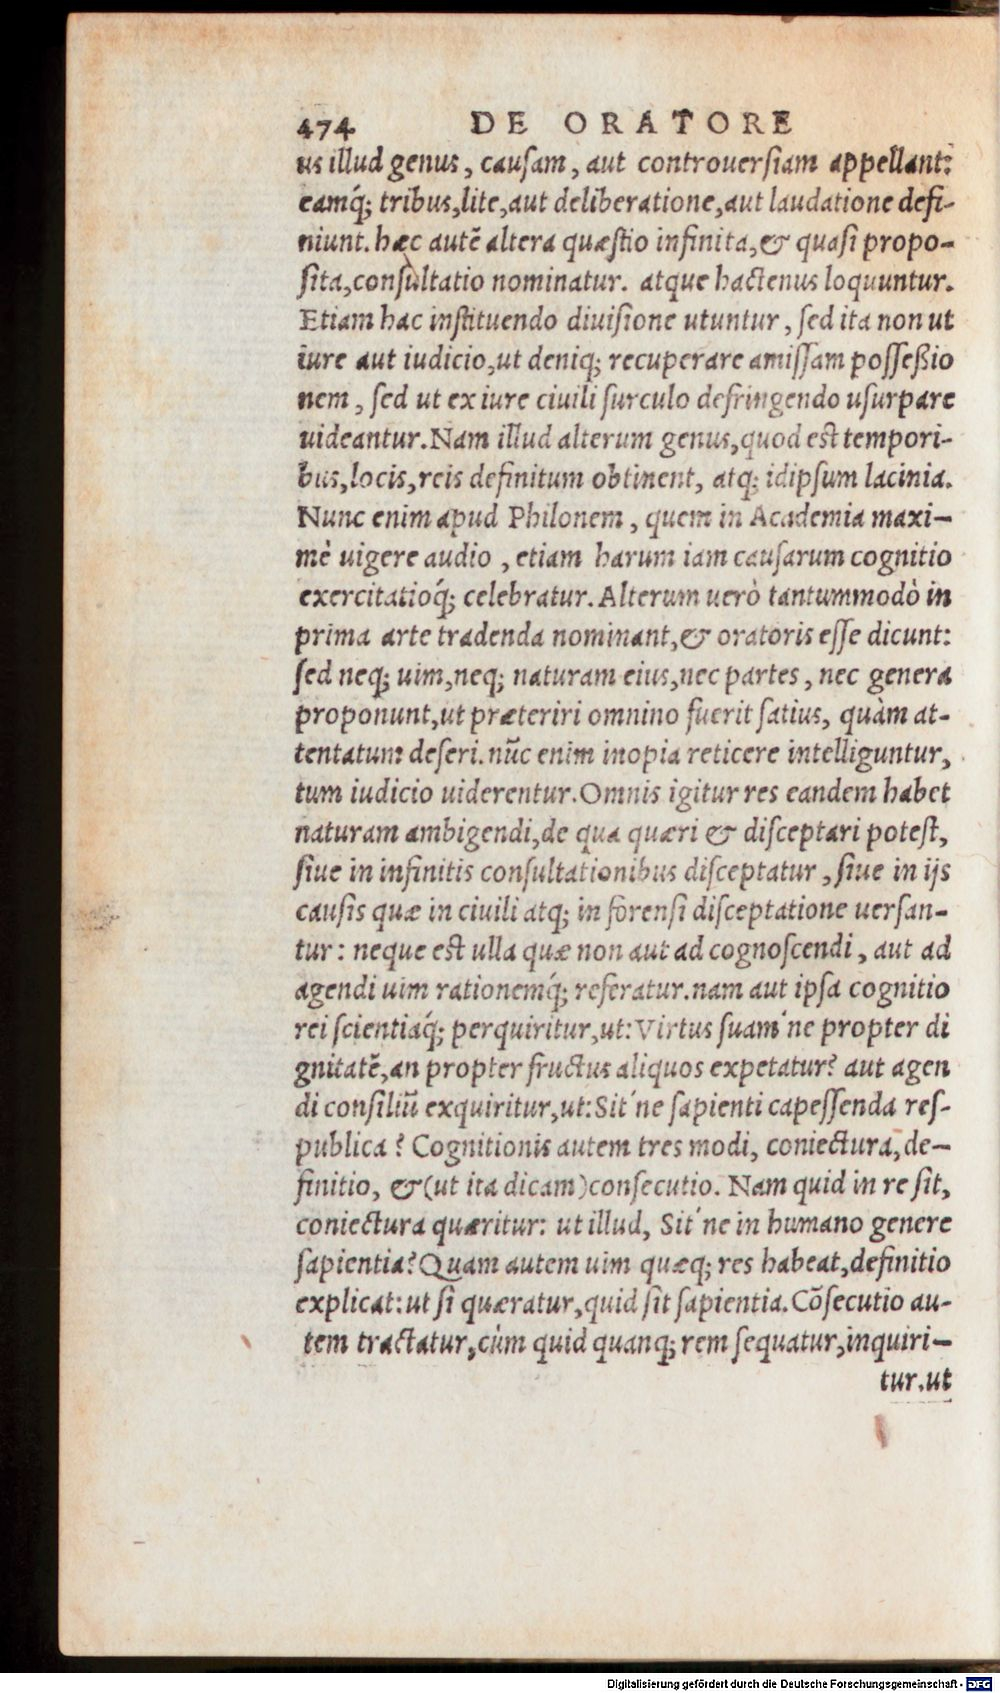 474 DE ORATORE
us illud genus, causam, aut controuersiam appellant:
eamq́; tribus, lite, aut deliberatione, aut laudatione defi-
niunt. hæc autẽ altera quæstio infinita, & quasi propo-
sita, consultatio nominatur. atque hactenus loquuntur.
Etiam hac instituendo diuisione utuntur, sed ita non ut
iure aut iudicio, ut deniq; recuperare amissam posseßio
nem, sed ut ex iure ciuili surculo defringendo usurpare
uideantur. Nam illud alterum genus, quod est tempori-
bus, locis, reis definitum obtinent, atq; idipsum lacinia.
Nunc enim apud Philonem, quem in Academia maxi-
mè uigere audio, etiam harum iam causarum cognitio
exercitatioq́; celebratur. Alterum uerò tantummodò in
prima arte tradenda nominant, & oratoris esse dicunt:
sed neq; uim, neq; naturam eius, nec partes, nec genera
proponunt, ut præteriri omnino fuerit satius, quàm at-
tentatum deseri. nũc enim inopia reticere intelliguntur,
tum iudicio uiderentur. Omnis igitur res eandem habet
naturam ambigendi, de qua quæri & disceptari potest,
siue in infinitis consultationibus disceptatur, siue in ijs
causis quæ in ciuili atq; in forensi disceptatione uersan-
tur: neque est ulla quæ non aut ad cognoscendi, aut ad
agendi uim rationemq́; referatur. nam aut ipsa cognitio
rei scientiaq́; perquiritur, ut: Virtus suam'ne propter di
gnitatẽ, an propter fructus aliquos expetatur? aut agen
di consiliũ exquiritur, ut: Sit'ne sapienti capessenda res-
publica? Cognitionis autem tres modi, coniectura, de-
finitio, & (ut ita dicam) consecutio. Nam quid in re sit,
coniectura quæritur: ut illud, Sit'ne in humano genere
sapientia? Quam autem uim quæq; res habeat, definitio
explicat: ut si quæratur, quid sit sapientia. Cõsecutio au-
tem tractatur, cùm quid quanq; rem sequatur, inquiri-
tur. ut
Digitalisierung gefördert durch die Deutsche Forschungsgemeinschaft - DFG